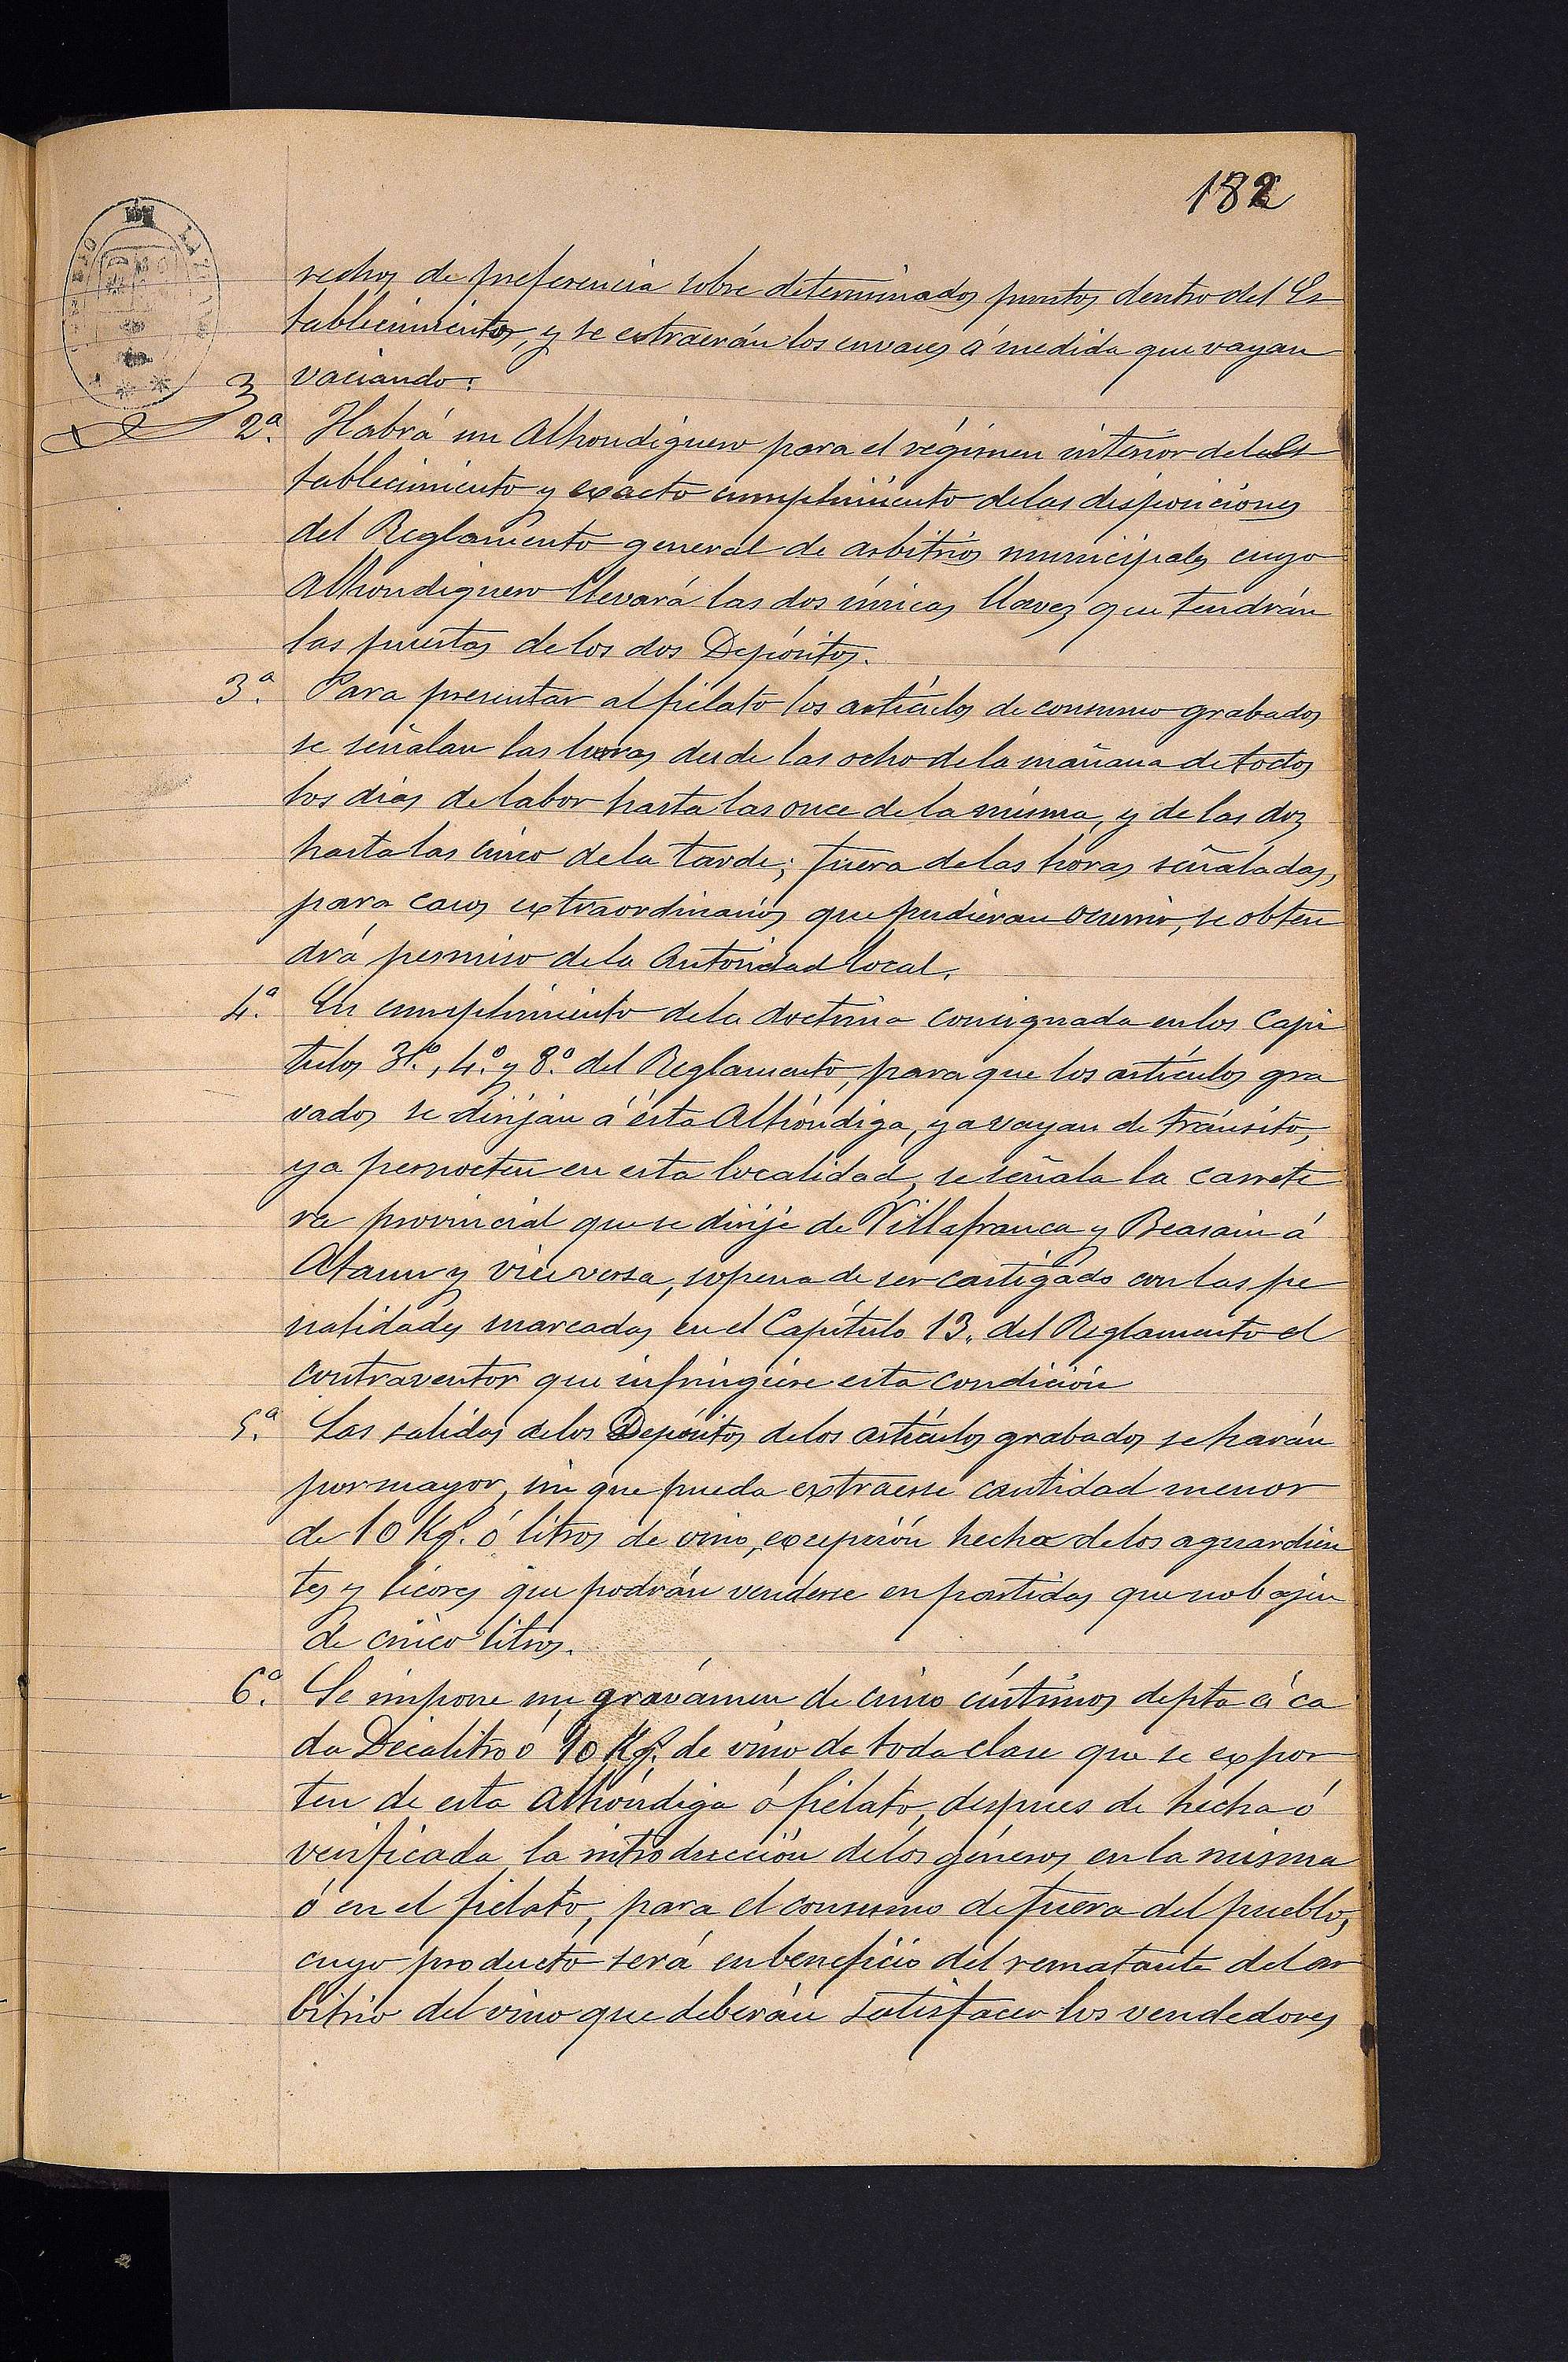 182
rechos de preferencia sobre determinados puntos dentro del Es
tablecimiento, y se extraerán los envases á medida que vayan
vaciando.
2ª. Habrá un Alhondiguero para el régimen interior del Es
tablecimiento y exacto cumplimiento de las disposiciones
del Reglamento general de arbitrios municipales cuyo
Alhondiguero llevará las dos únicas llaves que tendrán
las puertas de los dos Depósitos.
3ª. Para presentar al fielato los artículos de consumo grabados
se señalan las horas desde las ocho de la mañana de todos
los dias de labor hasta las once de la misma, y de las dos
hasta las cinco de la tarde; fuera de las horas señaladas,
para casos extraordinarios que pudieran ocurrir, se obten
drá permiso de la Autoridad local.
4ª. En cumplimiento de la doctrina consignada en los Capi
tulos 3º., 4º. y 8º. del Reglamento, para que los artículos gra
vados se dirijan á esta Alhóndiga, ya vayan de tránsito,
ya pernocten en esta localidad, se señala la carrete
ra provincial que se dirije de Villafranca y Beasain á
Ataun y viceversa, sopena de ser castigado con las pe
nalidades marcadas en el Capítulo 13. del Reglamento el
contraventor que infringiere esta condición
5ª. Las salidas de los Depósitos de los artículos grabados se harán
por mayor, sin que pueda extraerse cantidad menor
de 10 Kgs. ó litros de vino, excepción hecha de los aguardien
tes y licores que podrán venderse en partidas que no bajen
de cinco litros.
6ª. Se impone un gravámen de cinco céntimos de pta á ca
da Decalitro ó 10 Kgs. de vino de toda clase que se expor
ten de esta Alhóndiga ó fielato, despues de hecha ó
verificada la introducción de los géneros en la misma
ó en el fielato, para el consumo de fuera del pueblo,
cuyo producto será en beneficio del rematante del ar
bitrio del vino que deberán satisfacer los vendedores